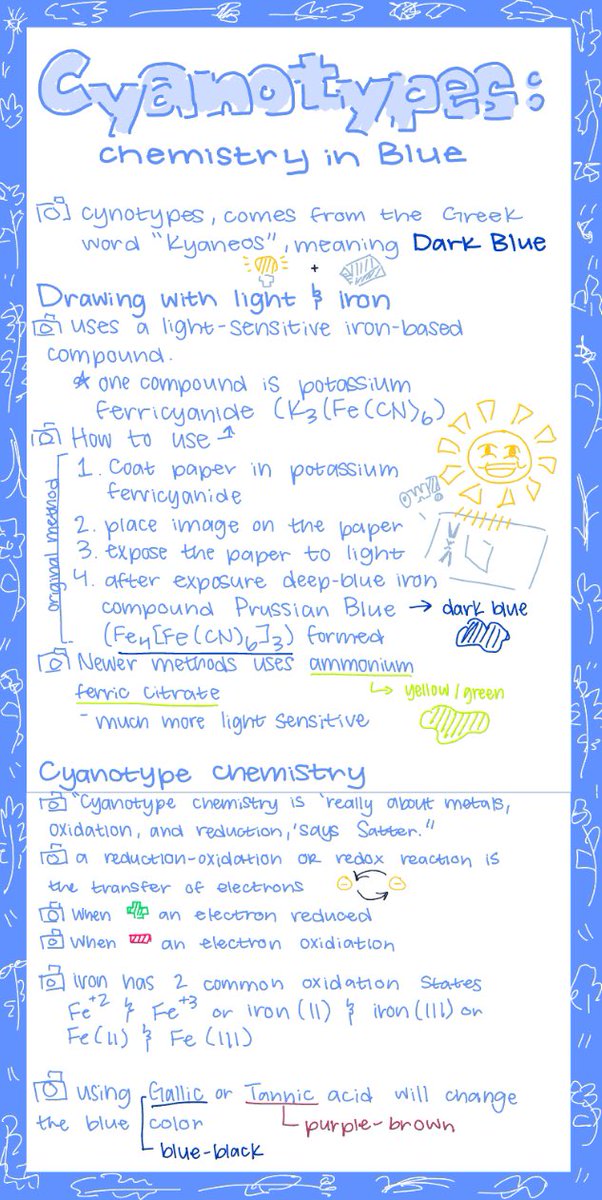 Cyanotypes:
chemistry in Blue
cynotypes, comes from the Greek
word "Kyaneos", meaning Dark Blue
+
Drawing with light & Iron
uses a light-sensitive iron-based
compound.
* one compound is potassium
ferricyanide (K3(Fe(CN)6)
How to use ↑
original method
1. Coat paper in potassium
ferricyanide
2. place image on the paper
3. expose the paper to light
OW!!!
4. after exposure deep-blue iron
compound Prussian Blue → dark blue
(Fe4[Fe(CN)6]3) formed
Newer methods uses ammonium
ferric citrate → yellow/green
- much more light sensitive
Cyanotype chemistry
"Cyanotype chemistry is 'really about metals,
oxidation, and reduction,' says Satter."
a reduction-oxidation or redox reaction is
the transfer of electrons
When + an electron reduced
When - an electron oxidiation
iron has 2 common oxidation states
Fe+2 & Fe+3 or iron (II) & iron (III) or
Fe(II) & Fe (III)
using Gallic or Tannic acid will change
the blue color
purple-brown
blue-black